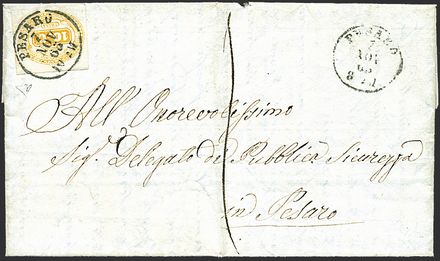 PESARO
7
NOV
63
PESARO
7
NOV
63
8
All' Onorevolissimo
Sig. Delegato di Pubblica Sicurezza
in Pesaro